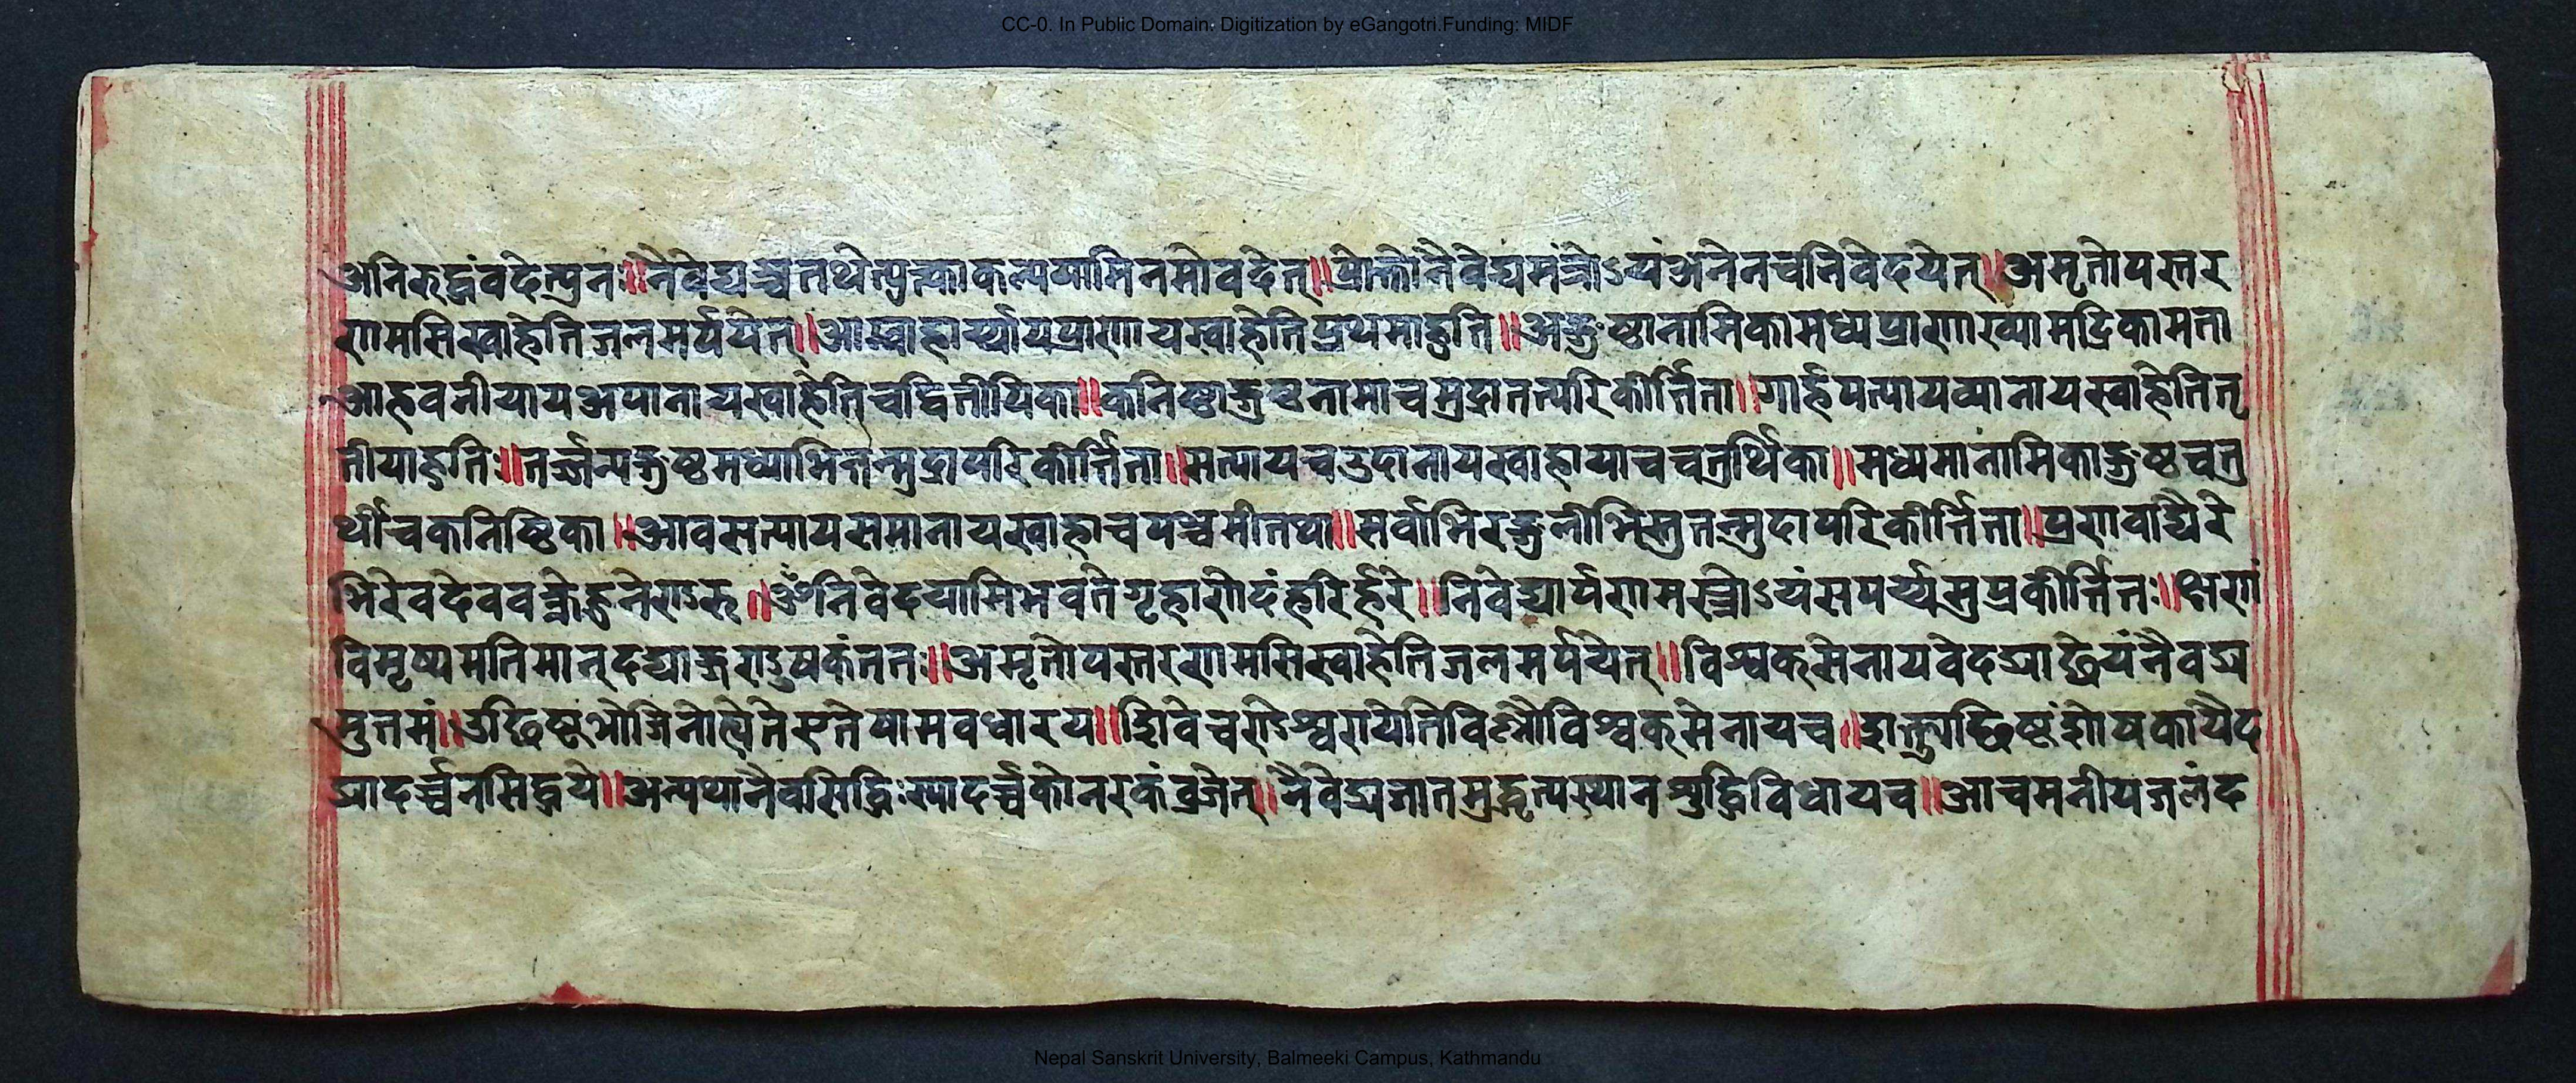 CC-0. In Public Domain. Digitization by eGangotri.Funding: MIDF
अनिरुद्धंवदेत्पुनः॥नैवेद्यञ्चतथेत्युत्काकल्पयामिनमोवदेत्॥प्रोक्तोनैवेद्यमंत्रोऽयंअनेनचनिवेदयेत्॥अमृतोपस्तर
णमसिस्वाहेतिजलमर्पयेत्॥प्राणायस्वाहेतिप्रथमाहुति॥अङ्गुष्ठानामिकामध्यप्राणाख्यामद्रिकामता
आहवनीयायअपानायस्वाहेतिचद्वितीयिका॥कनिष्ठाङ्गुष्ठनासाचमुद्रातत्परिकीर्त्तिता॥गार्हपत्यायव्यानायस्वाहेतितृ
तीयाहुतिः॥तर्ज्जन्यङ्गुष्ठमध्याभितन्मुद्रापरिकीर्त्तिता॥सत्यायचउदानायस्वाहायाचचतुर्थिका॥मध्यमानामिकाङ्गुष्ठचतु
र्थीचकनिष्ठिका॥आवसत्यायसमानायस्वाहाचपञ्चमीतथा॥सर्वाभिरङ्गुलीभिस्तुतन्मुदापरिकीर्त्तिता॥प्रणवाद्यैरे
भिरेवदेव॥ॐनिवेदयामिभवतेगृहाणेदंहरिर्हरे॥निवेद्यार्पणमन्त्रोऽयंप्रकीर्त्तितः॥क्षणं
विमृष्यमतिमान्ततः॥अमृतोपस्तरणमसिस्वाहेतिजलमर्पयेत्॥विश्वक्सेनाय
मुत्तमं॥उच्छिष्टभोजिनोएतेषामवधारय॥शिवेचण्डेश्वरायेतिविष्णौविश्वक्सेनायच॥
द्यादर्च्चनसिद्धये॥अन्यथानैवसिद्धिःस्यादर्च्चकोनरकंव्रजेत्॥नैवेद्यजातमुद्धृत्यस्थानशुद्धिविधायच॥आचमनीयजलंद
Nepal Sanskrit University, Balmeeki Campus, Kathmandu